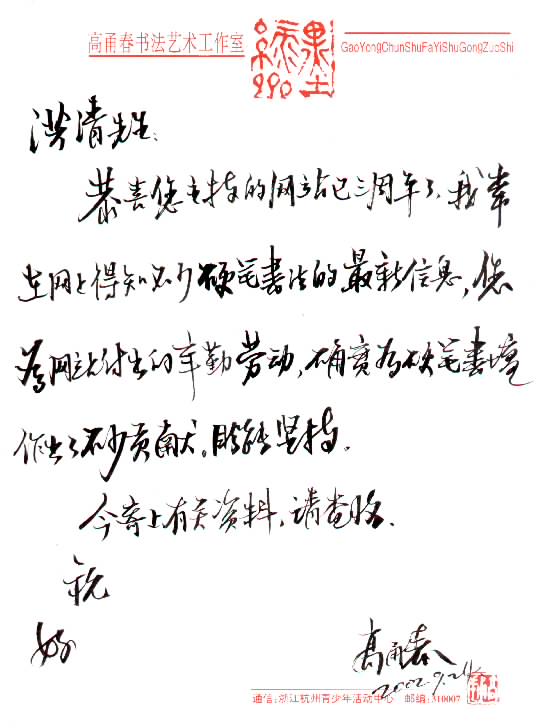 高甬春书法艺术工作室
GaoYongChunShuFaYiShuGongZuoShi
洪清先生:
恭喜您主持的网站已三周年了,我常
在网上得知不少硬笔书法的最新信息,您
为网站付出的辛勤劳动,确实为硬笔书坛
作出了不少贡献。盼能坚持。
今寄上有关资料,请查收.
祝
好
高甬春
2002.9.24
通信:浙江杭州青少年活动中心 邮编:310007